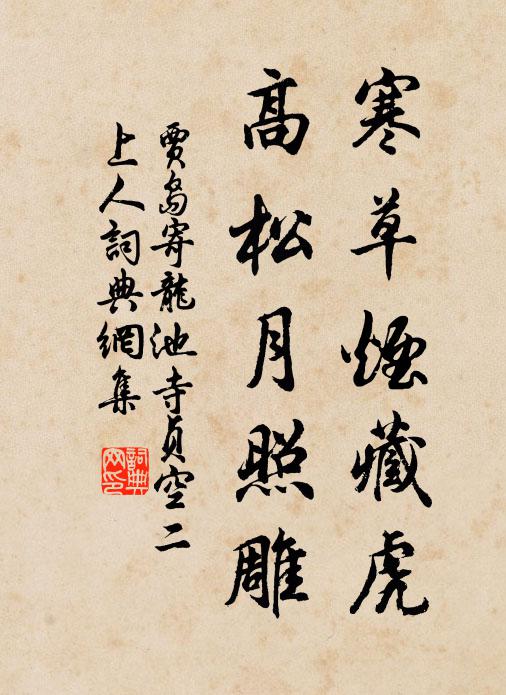 寒草煙藏虎
高松月照雕
賈島寄龍池寺貞空二
上人詞典網集
詞典
网印